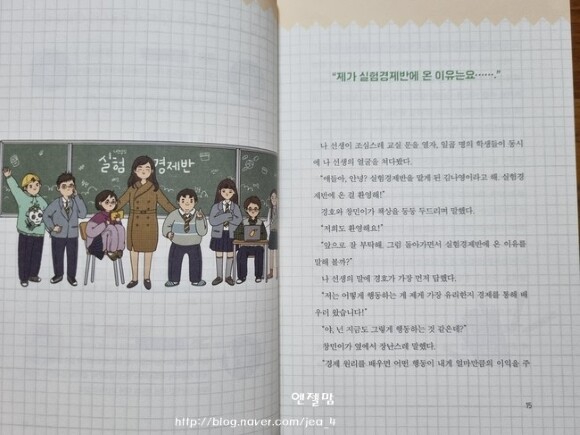 실험 경제반
"제가 실험경제반에 온 이유는요……."
나 선생이 조심스레 교실 문을 열자, 일곱 명의 학생들이 동시
에 나 선생의 얼굴을 쳐다봤다.
"얘들아, 안녕? 실험경제반을 맡게 된 김나영이라고 해. 실험경
제반에 온 걸 환영해!"
경호와 창민이가 책상을 둥둥 두드리며 말했다.
"저희도 환영해요!"
"앞으로 잘 부탁해. 그럼 돌아가면서 실험경제반에 온 이유를
말해 볼까?"
나 선생의 말에 경호가 가장 먼저 답했다.
"저는 어떻게 행동하는 게 제게 가장 유리한지 경제를 통해 배
우러 왔습니다!"
"야, 넌 지금도 그렇게 행동하는 것 같은데?"
창민이가 옆에서 장난스레 말했다.
"경제 원리를 배우면 어떤 행동이 내게 얼마만큼의 이익을 주
15
엔젤맘
http://blog.naver.com/jea_4